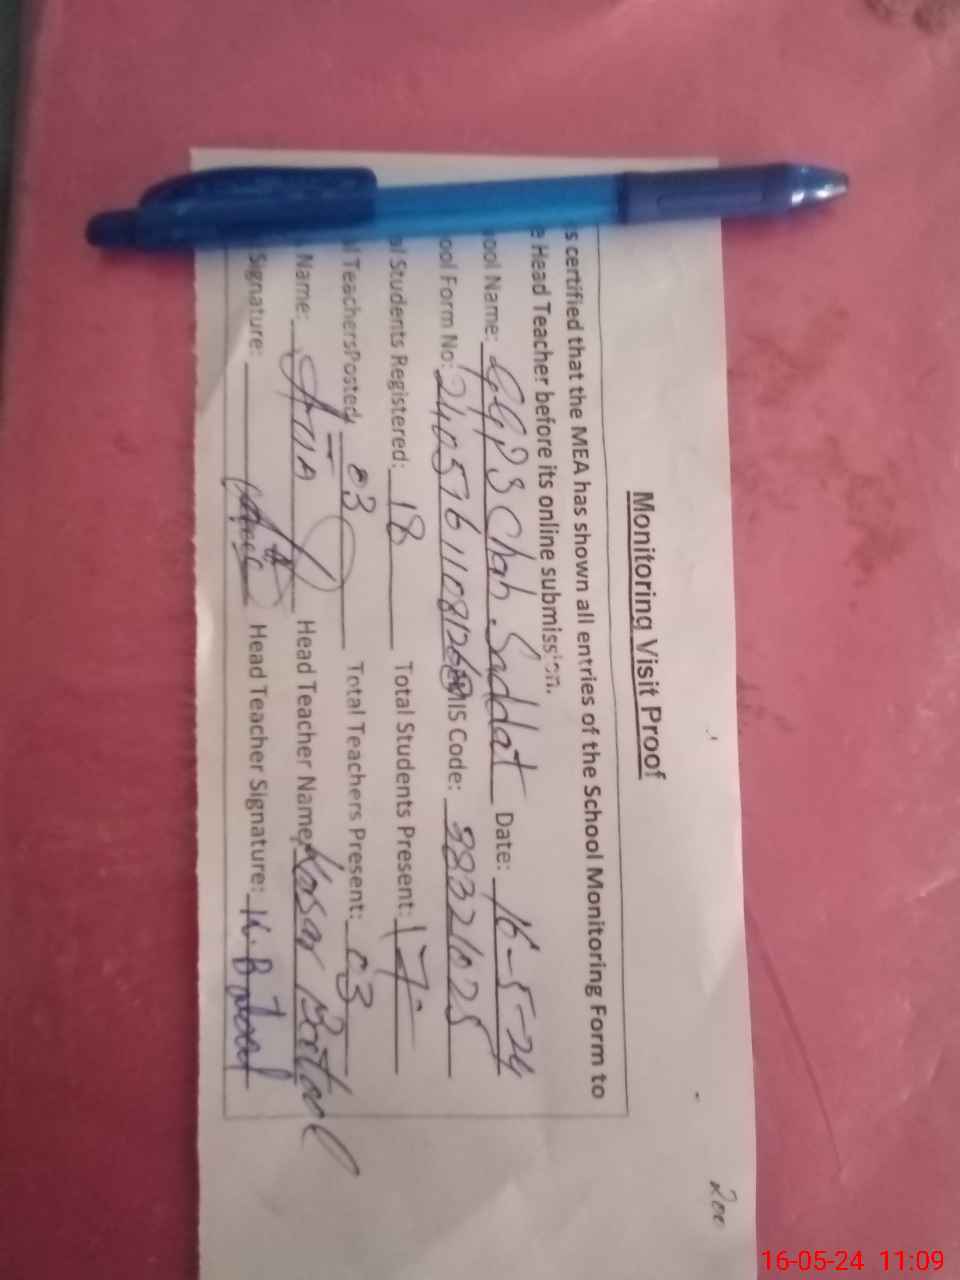 200
Monitoring Visit Proof
s certified that the MEA has shown all entries of the School Monitoring Form to
e Head Teacher before its online submission.
ool Name: GGPS Chah Saddat Date: 16-5-24
ool Form No: Code:
al Students Registered: 18 Total Students Present: 17
al TeachersPosted: 03 Total Teachers Present: 03
Name: Head Teacher Name: Kosar Batool
Signature: Head Teacher Signature: K. Batool
16-05-24 11:09